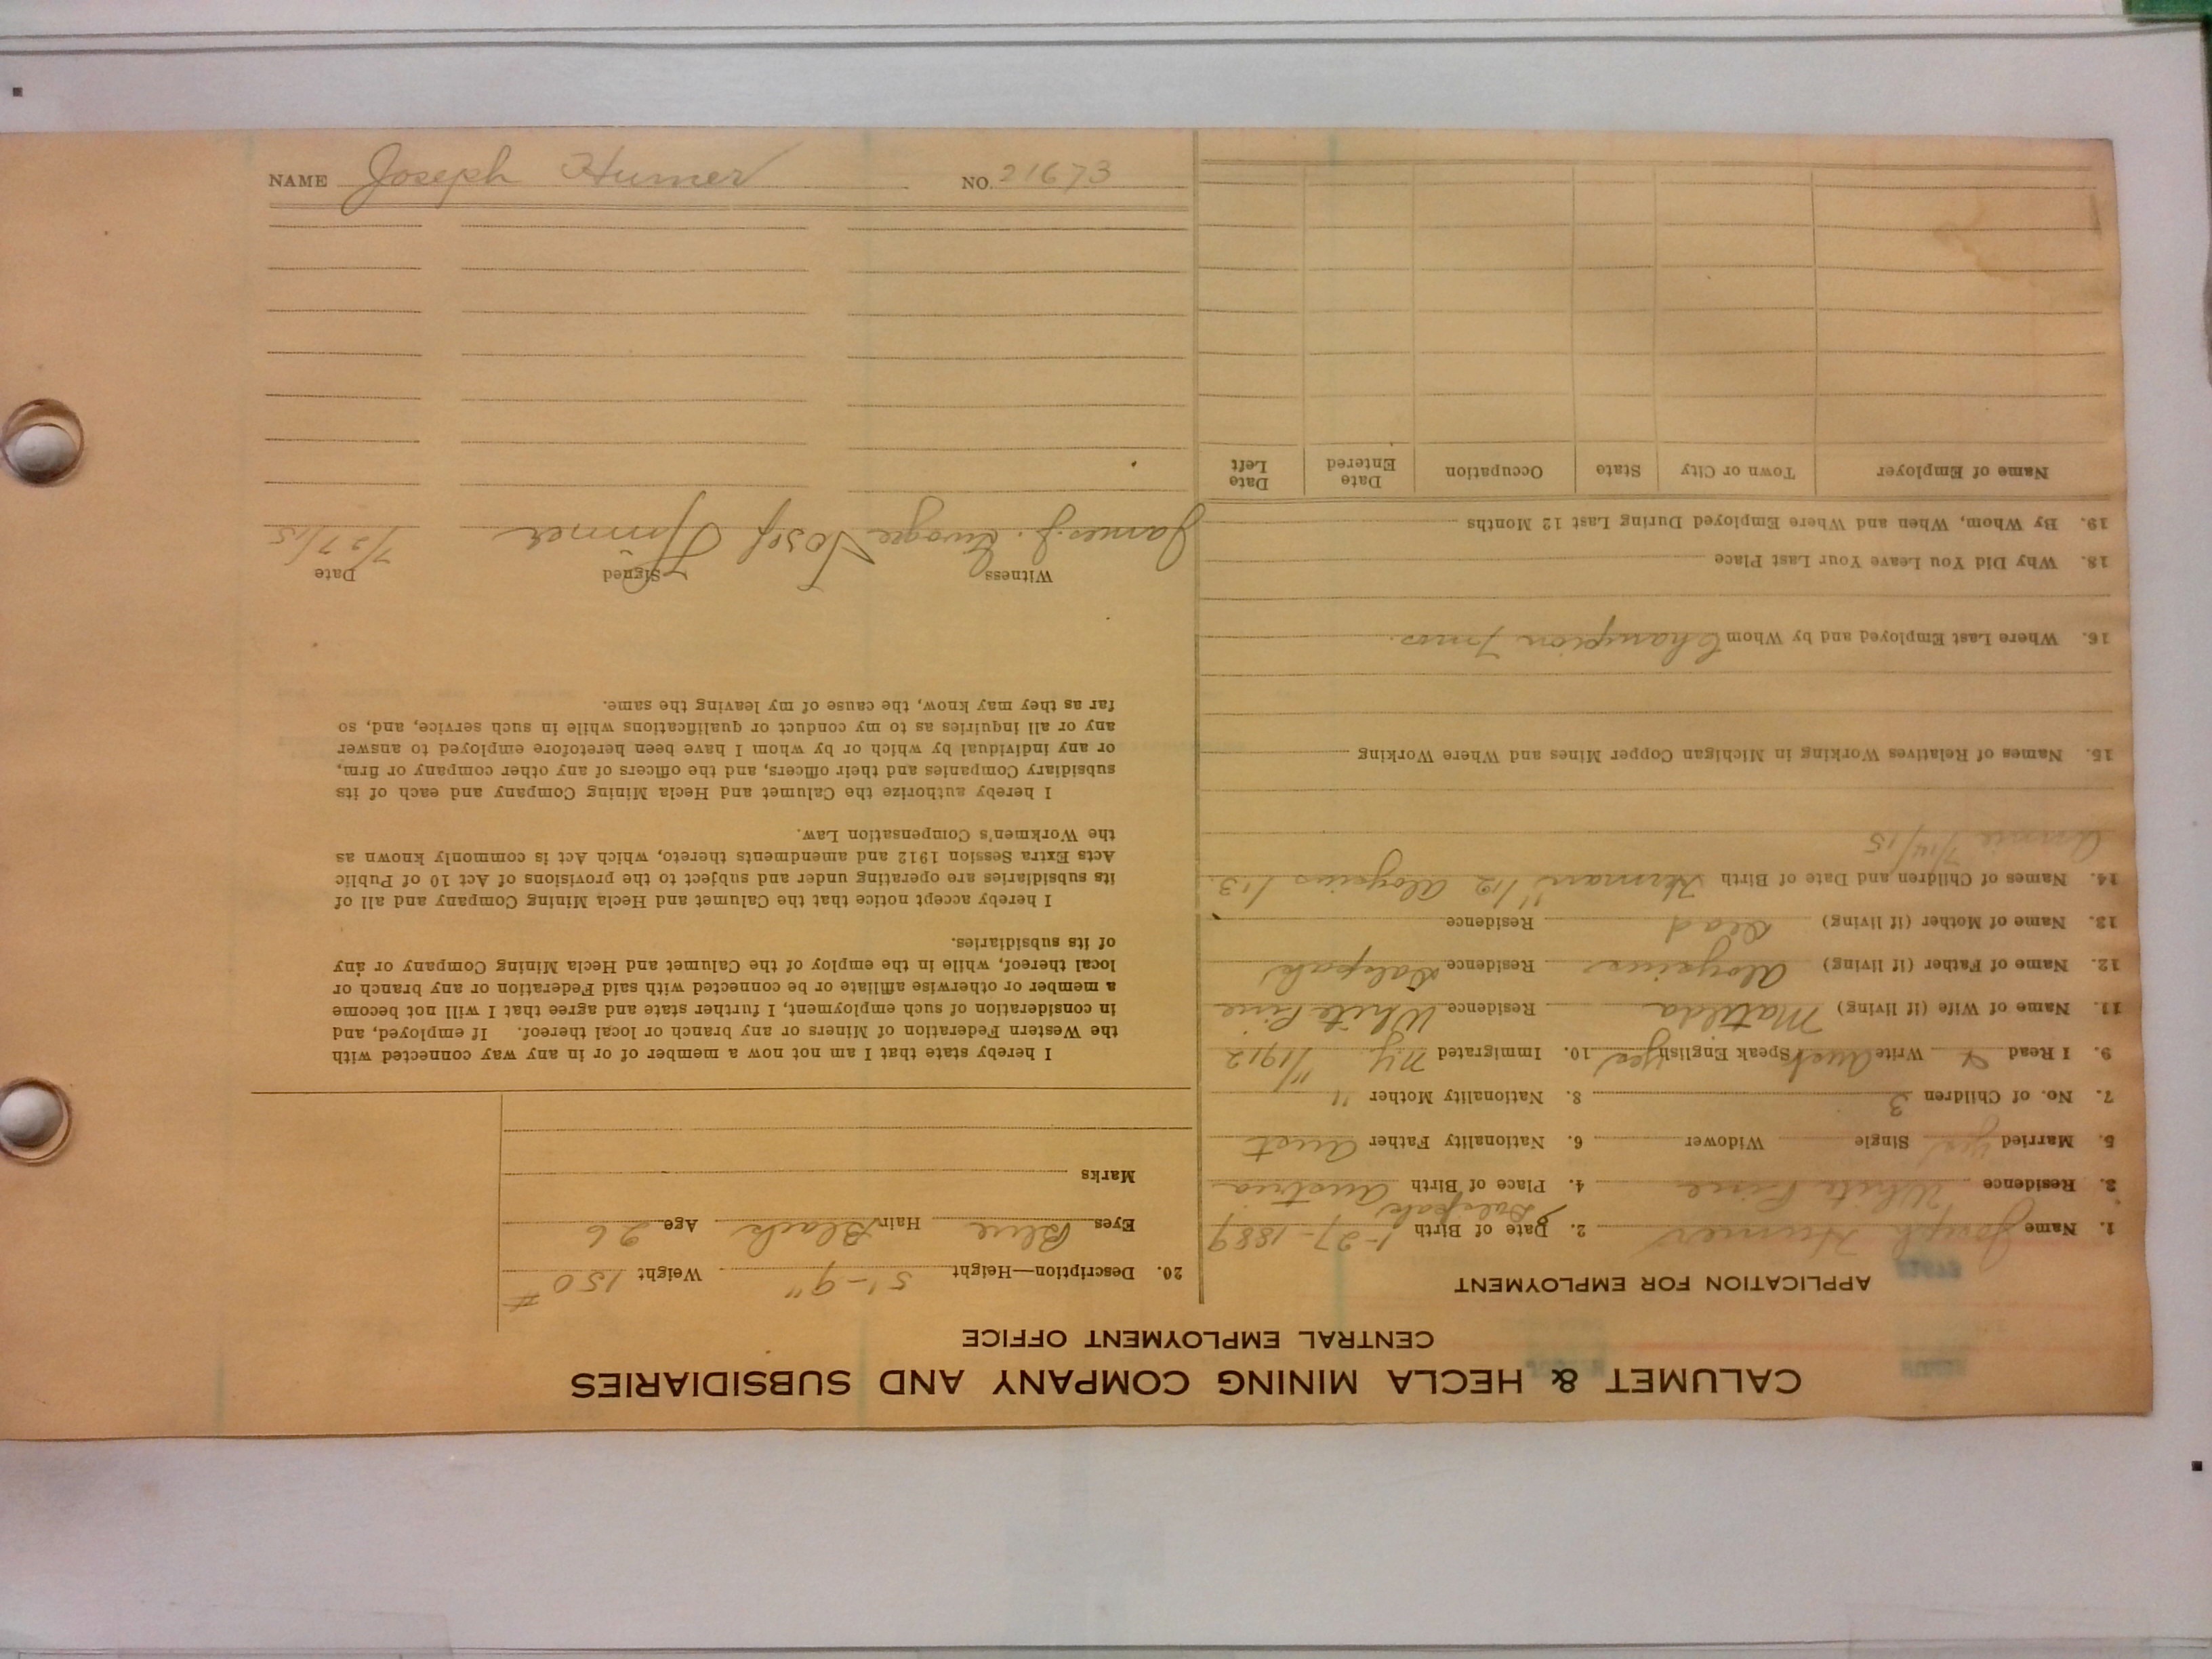 CALUMET & HECLA MINING COMPANY AND SUBSIDIARIES
CENTRAL EMPLOYMENT OFFICE
APPLICATION FOR EMPLOYMENT
1. Name Joseph Humer 2. Date of Birth 1-27-1889
3. Residence White Pine 4. Place of Birth Austria
5. Married yes Single Widower 6. Nationality Father Aust
7. No. of Children 3 8. Nationality Mother "
9. I Read & Write Aust Speak English yes 10. Immigrated N.Y. 11/1912
11. Name of Wife (if living) Matilda Residence White Pine
12. Name of Father (if living) Aloysius Residence
13. Name of Mother (if living) Dead Residence
14. Names of Children and Date of Birth Herman 1/12 Aloysius 1/13.
Annie 7/14/15
15. Names of Relatives Working in Michigan Copper Mines and Where Working
16. Where Last Employed and by Whom Champion 7 mos.
18. Why Did You Leave Your Last Place
19. By Whom, When and Where Employed During Last 12 Months
Name of Employer Town or City State Occupation Date Entered Date Left
20. Description—Height 5'-9" Weight 150 #
Eyes Blue Hair Black Age 26
Marks
I hereby state that I am not now a member of or in any way connected with
the Western Federation of Miners or any branch or local thereof. If employed, and
in consideration of such employment, I further state and agree that I will not become
a member or otherwise affiliate or be connected with said Federation or any branch or
local thereof, while in the employ of the Calumet and Hecla Mining Company or any
of its subsidiaries.
I hereby accept notice that the Calumet and Hecla Mining Company and all of
its subsidiaries are operating under and subject to the provisions of Act 10 of Public
Acts Extra Session 1912 and amendments thereto, which Act is commonly known as
the Workmen's Compensation Law.
I hereby authorize the Calumet and Hecla Mining Company and each of its
subsidiary Companies and their officers, and the officers of any other company or firm,
or any individual by which or by whom I have been heretofore employed to answer
any or all inquiries as to my conduct or qualifications while in such service, and, so
far as they may know, the cause of my leaving the same.
Witness Signed Date
James J. Josef Hummer 7/27/15
NAME Joseph Humer NO. 21673